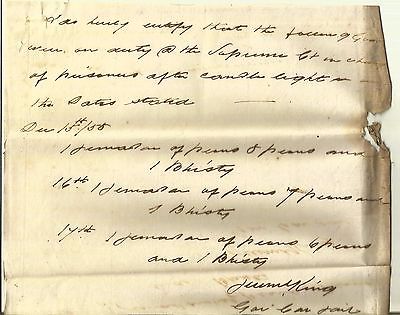 I do hereby certify that the following
were on duty @ the Supreme Ct in
of prisoners after candle light
the dates stated
Dec 15th/55
1 Jemadar of peons 8 peons and
1 Bhisty
16th 1 Jemadar of peons 7 peons and
1 Bhisty
17th 1 Jemadar of peons 6 peons
and 1 Bhisty
King